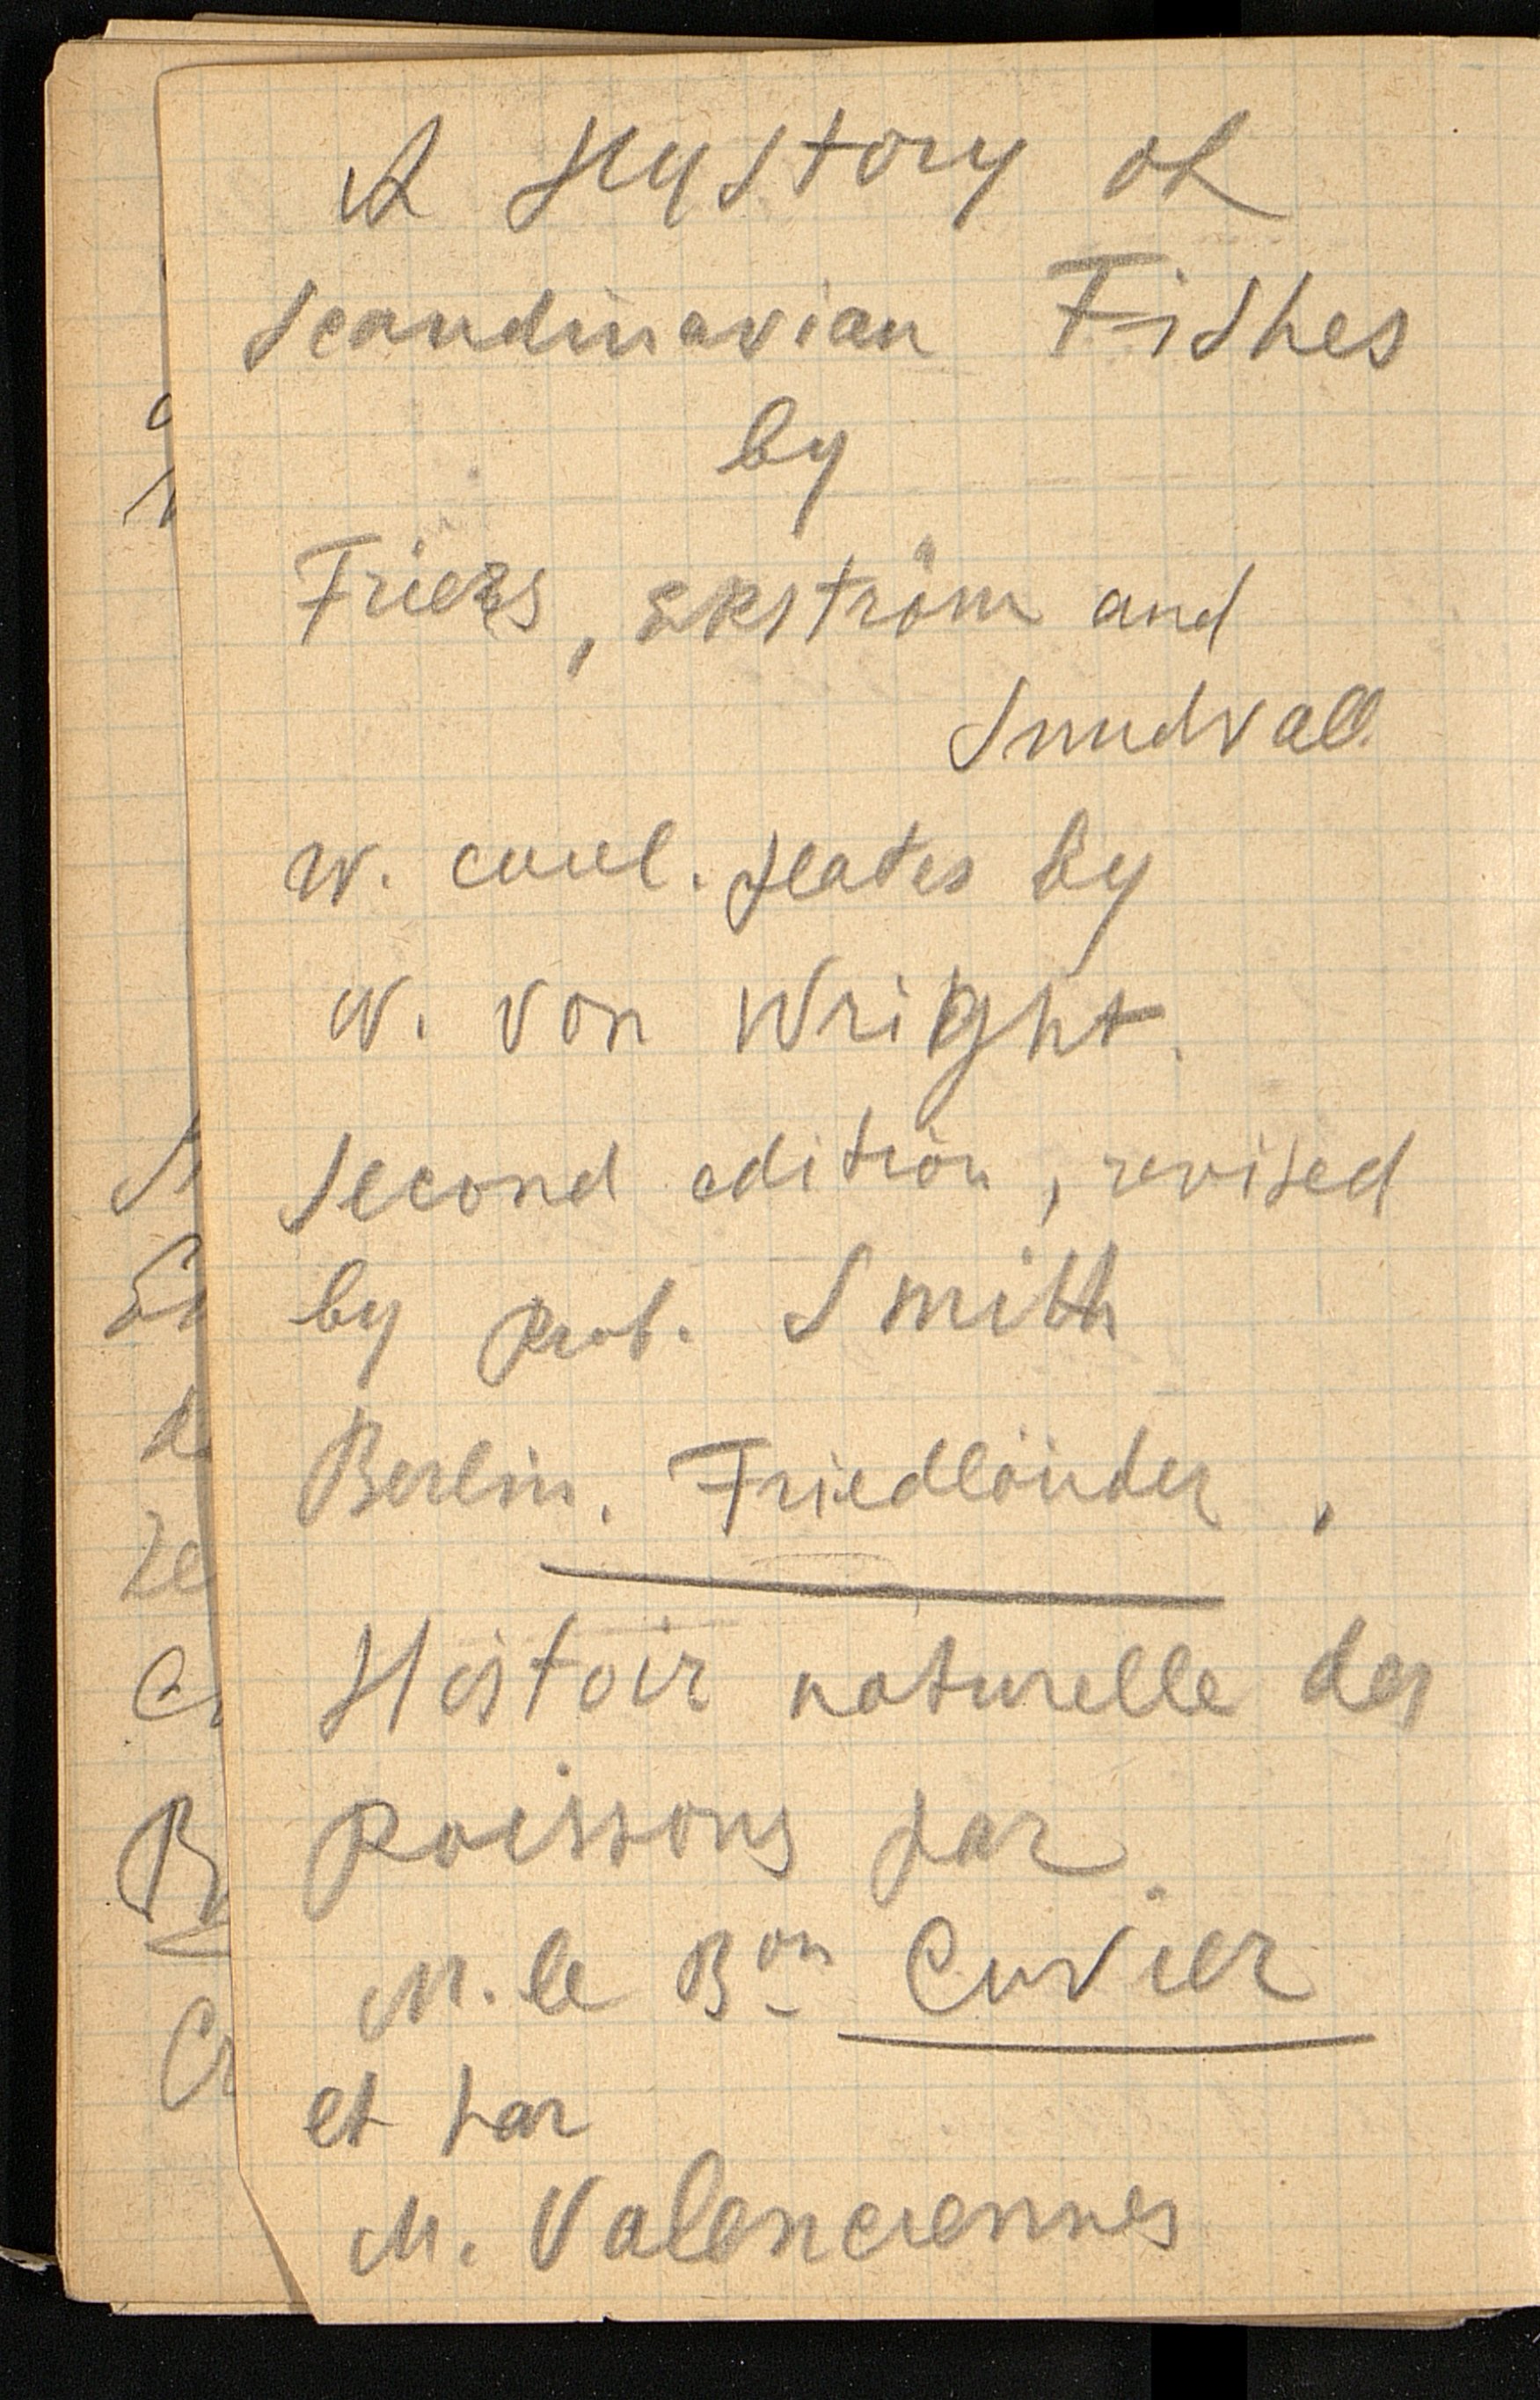 A Hystory of
Scandinavian Fishes
by
Fries, Ekström and
Sundvall
W. coul. plates by
W. von Wright.
Second edition, revised
by Prof. Smith
Berlin. Friedländer.
Histoir naturelle des
Poissons par
M. le Bon Cuvier
et par
M. Valenciennes